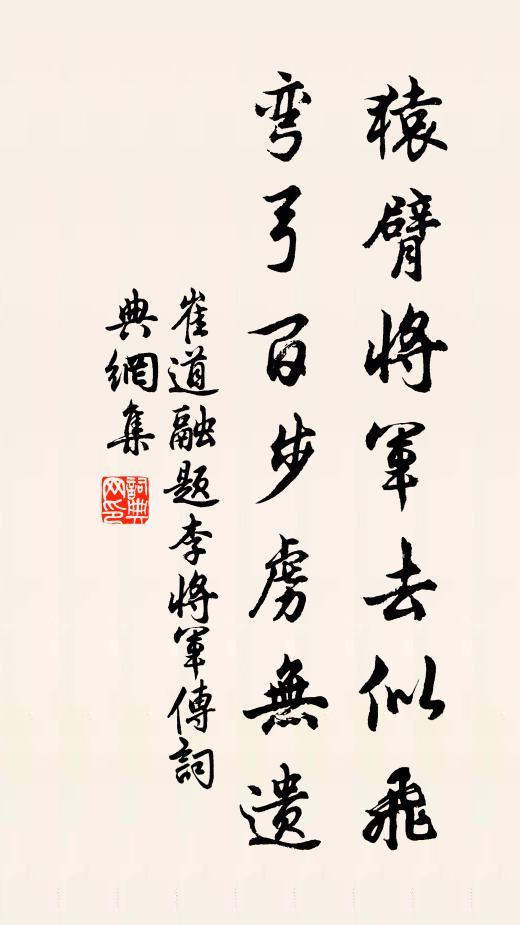 猿臂將軍去似飛
弯弓百步虜無遺
崔道融題李將軍傳詞
典網集
詞典网印